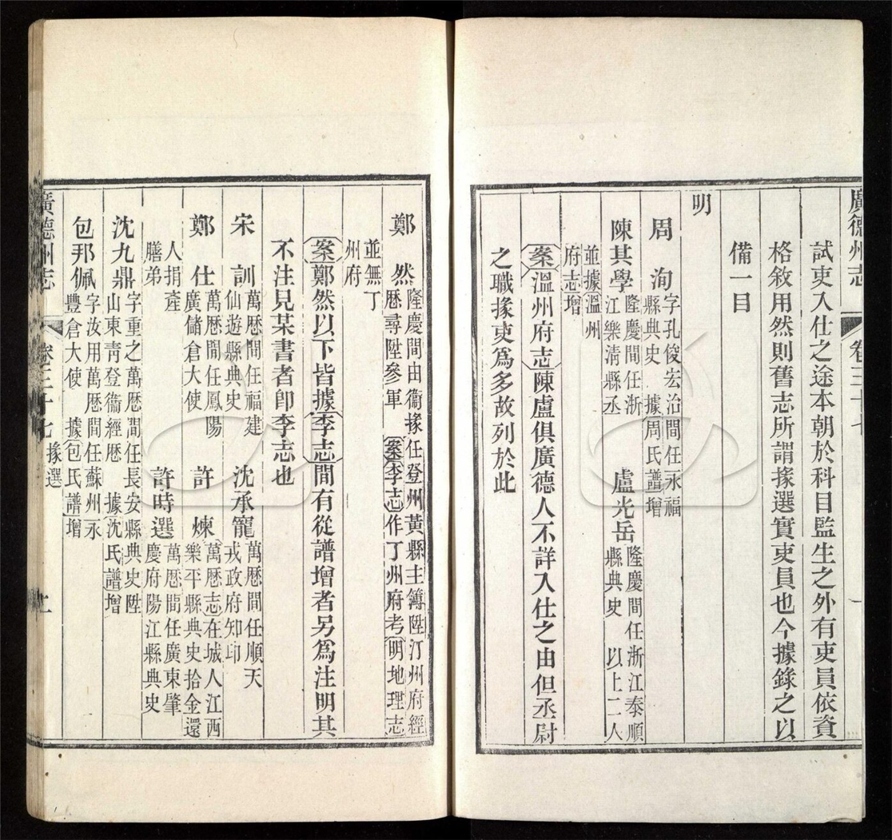 廣德州志 卷三十七
試吏入仕之途本朝於科目監生之外有吏員依資
格敘用然則舊志所謂掾選實吏員也今據錄之以
備一目
明
周洵 字孔俊宏治間任永福
縣典史 據周氏譜增
陳其學 隆慶間任浙
江樂清縣丞
盧光岳 隆慶間任浙江泰順
縣典史 以上二人
並據溫州
府志增
案溫州府志陳盧俱廣德人不詳入仕之由但丞尉
之職掾吏爲多故列於此
鄭然 隆慶間由衞掾任登州黃縣主簿陞汀州府經
歷尋陞參軍 案李志作丁州府考明地理志
並無丁
州府
案鄭然以下皆據李志間有從譜增者另爲注明其
不注見某書者卽李志也
宋訓 萬歷間任福建
仙遊縣典史
沈承寵 萬歷間任順天
戎政府知印
鄭仕 萬歷間任鳳陽
廣儲倉大使
許煉 萬歷志在城人江西
樂平縣典史拾金還
人捐產
膳弟
許時選 萬歷間任廣東肇
慶府陽江縣典史
沈九鼎 字重之萬歷間任長安縣典史陞
山東靑登衞經歷 據沈氏譜增
包邦佩 字汝用萬歷間任蘇州永
豐倉大使 據包氏譜增
廣德州志 卷三十七 掾選